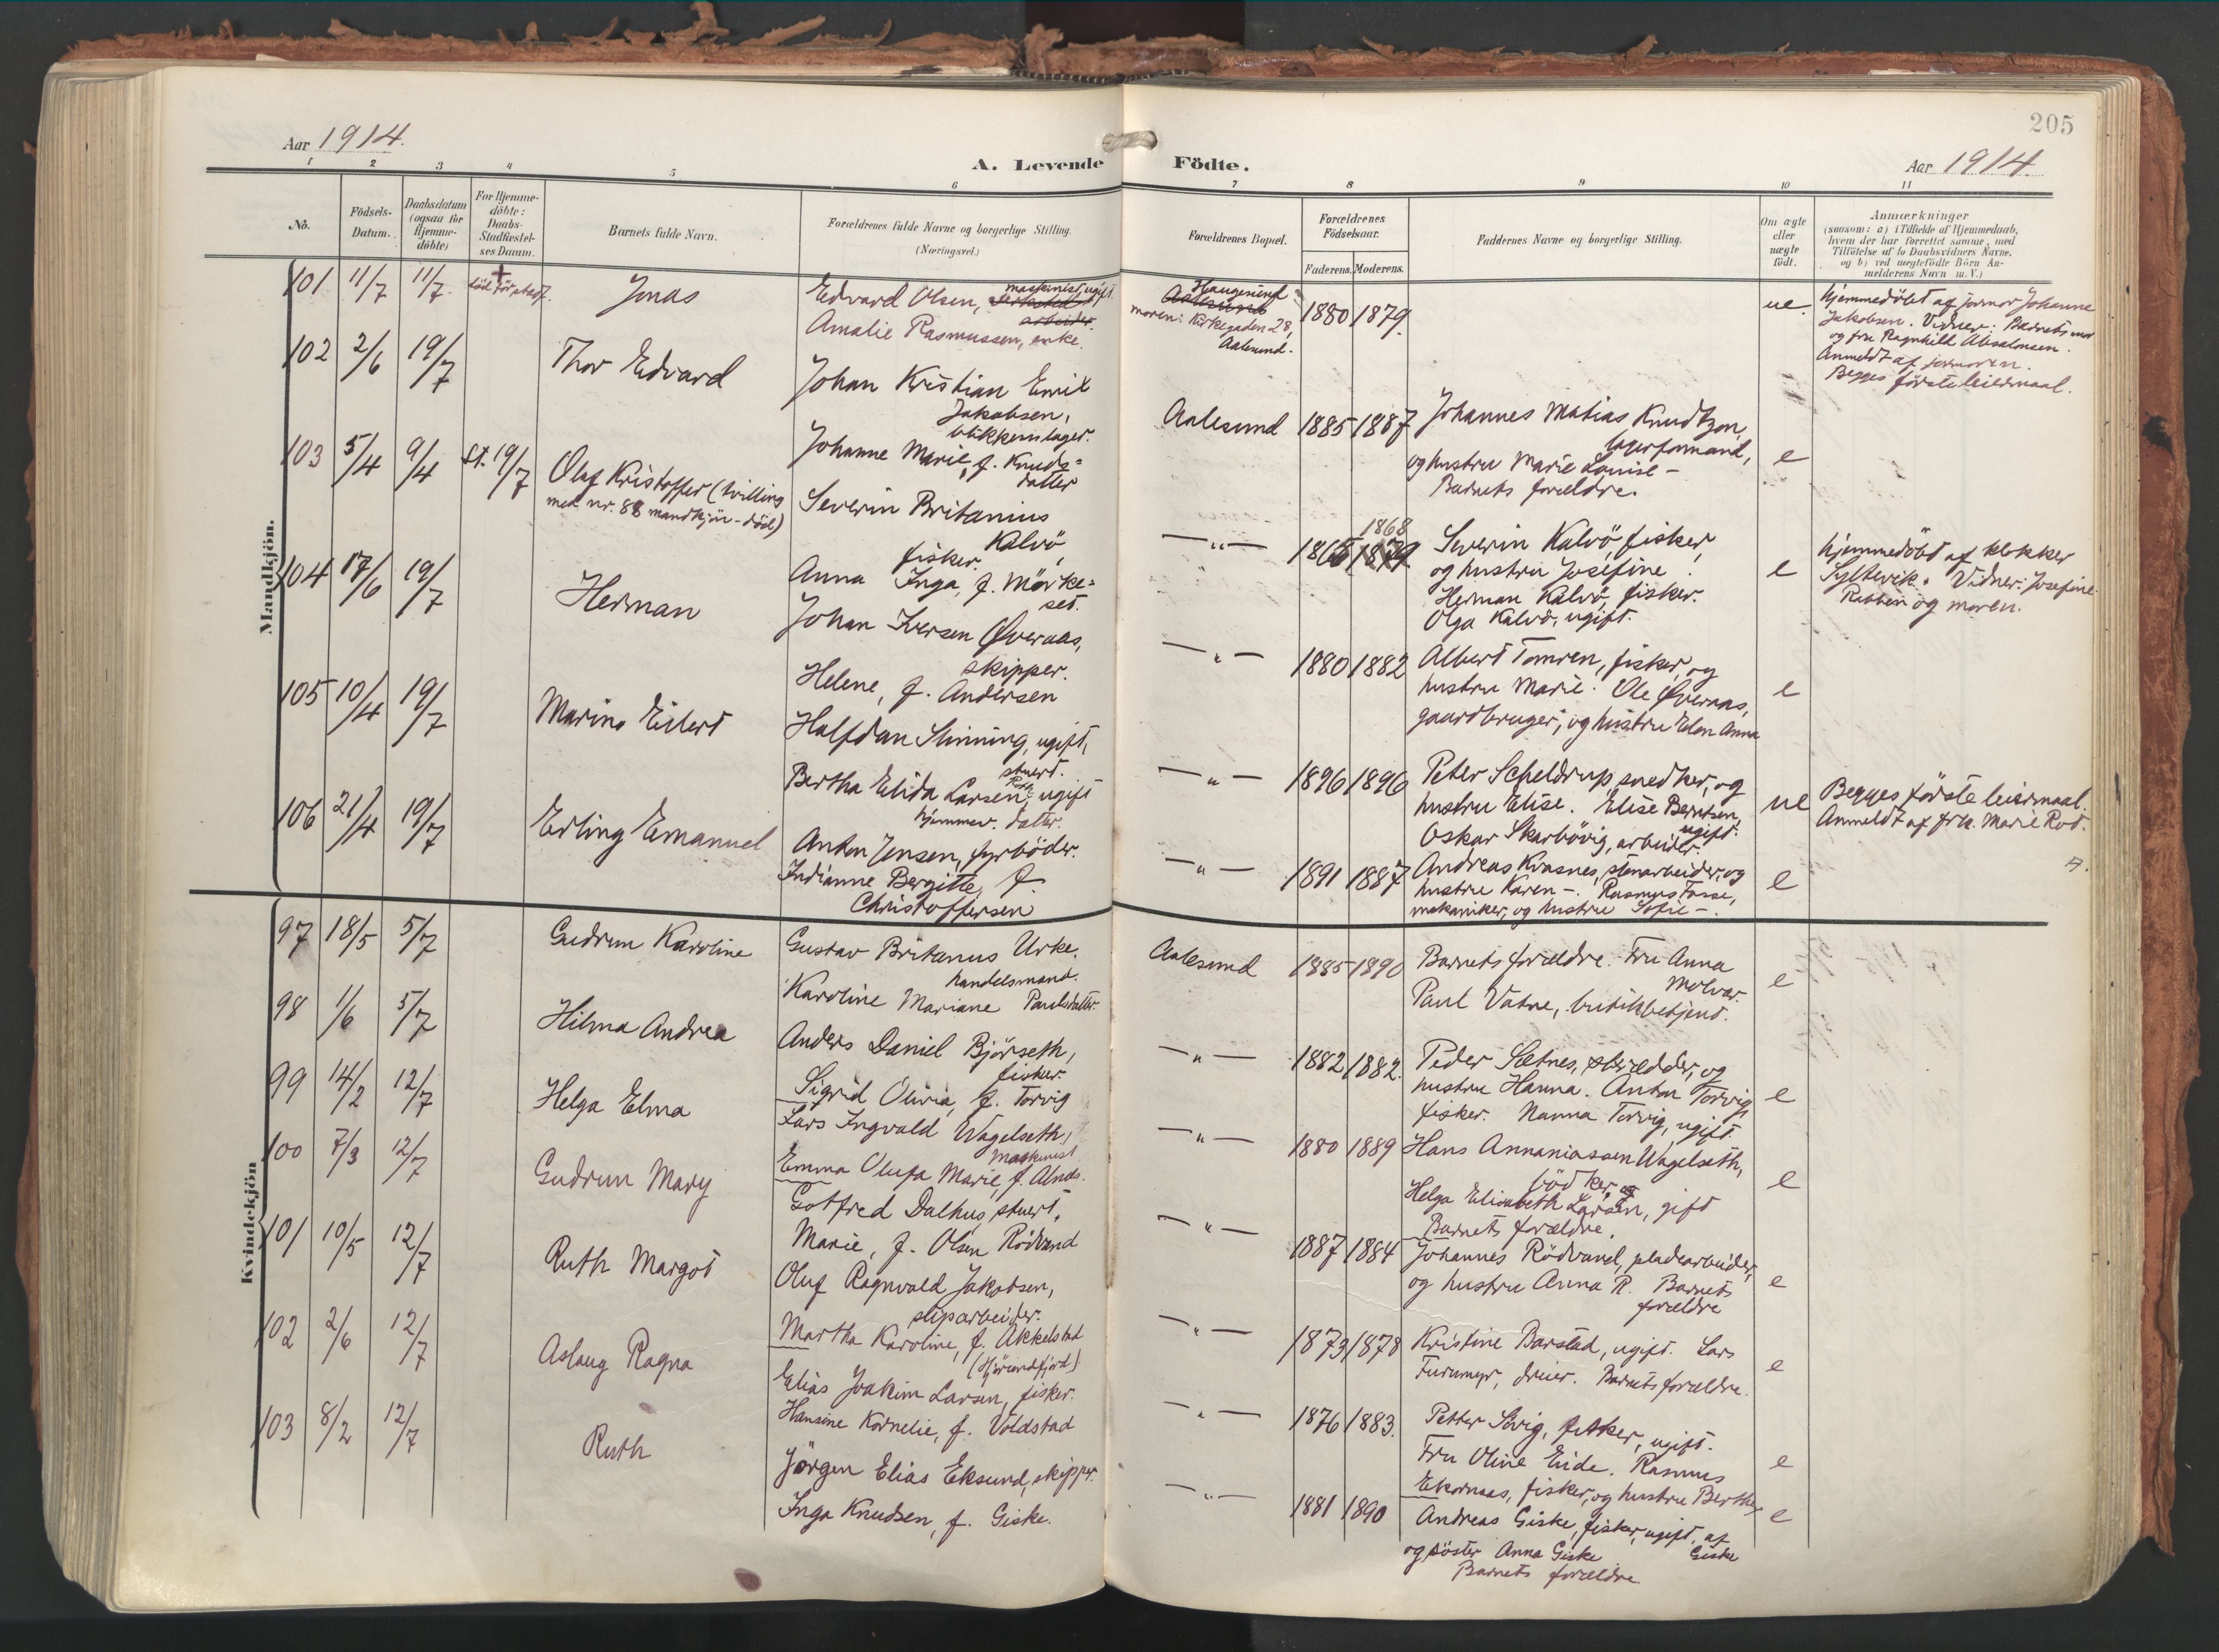 205
Aar 1914.
A. Levende Födte.
Aar 1914.
1 2 3 4 5 6 7 8 9 10 11
No.
Födsels-
Datum.
Daabsdatum
(ogsaa for
Hjemme-
döbte)
For Hjemme-
döbte:
Daabs-
Stadfæstel-
ses Datum.
Barnets fulde Navn.
Forældrenes fulde Navne og borgerlige Stilling.
(Næringsvei.)
Forældrenes Bopæl.
Forældrenes
Födselsaar.
Faderens. Moderens.
Faddernes Navne og borgerlige Stilling.
Om ægte
eller
uægte
födt.
Anmærkninger
(saasom: a) i Tilfælde af Hjemmedaab,
hvem der har forrettet samme, med
Tilföielse af to Daabsvidners Navne,
og b) ved uægtefödte Börn An-
melderens Navn m. V.)
Mandkjön.
101 11/7 11/7. + död før stadf. Jonas
Edvard Olsen, maskinist, ugift.
arbeider.
Amalie Rasmussen, enke.
Haugesund
Aalesund
moren: Kirkegaden 28,
Aalesund.
1880 1879.
ue.
Hjemmedöbt af jormor Johanne
Jakobsen. Vidner: Barnets mor
og fru Ragnhild Absalonsen.
Anmeldt af jormoren.
Begges förste leiermaal.
102 2/6 19/7 Thor Edvard
Johan Kristian Emil
Jakobsen,
blikkenslager.
Johanne Marie, f. Knuds=
datter
Aalesund 1885 1887
Johannes Matias Knudtzon,
lagerformand,
og hustru Marie Louise -
Barnets forældre.
e
103 5/4 9/4 St. 19/7 Oluf Kristoffer (tvilling
med nr. 88 mandkjön - död)
Severin Britanius
Kalvö,
fisker.
Anna Inga, f. Mörke=
set.
— „ — 1865 1868 1879
Severin Kalvö, fisker,
og hustru Josefine.
Herman Kalvö, fisker.
Olga Kalvö, ugift.
e
Hjemmedöbt af klokker
Syltevik. Vidner: Josefine
Rabben og moren.
104 17/6 19/7 Herman
Johan Iversen Øveraas,
skipper.
Helene, f. Andersen
— „ — 1880 1882
Albert Tomren, fisker, og
hustru Marie. Ole Øveraas,
gaardbruger, og hustru Elen Anna
e
105 10/4 19/7 Marino Eilert
Halfdan Slinning, ugift,
stuert.
Bertha Elida Larsen, ugift
hjemmev. datter.
— „ — 1896 1896
Peter Scheldrup, snedker, og
hustru Elise. Elise Berntsen,
ugift.
Oskar Skarbövig, arbeider.
ue
Begges förste leiermaal.
Anmeldt af frk. Marie Rod.
106 21/4 19/7 Erling Emanuel
Anton Jensen, fyrböder.
Indianne Bergitte, f.
Christoffersen
— „ — 1891 1887
Andreas Kvasnes, stenarbeider, og
hustru Karen -. Rasmus Fosse,
mekaniker, og hustru Sofie -.
e
Kvindekjön
97 18/5 5/7 Gudrun Karoline
Gustav Britanus Urke.
handelsmand.
Karoline Mariane Paulsdatter.
Aalesund 1885 1890
Barnets forældre. Fru Anna
Molvær.
Paul Vatne, butikbetjent.
e
98 1/6 5/7 Hilma Andrea
Anders Daniel Björseth,
fisker.
Sigrid Olivia, f. Torvig
— „ — 1882 1882.
Peder Sætnes, skrædder, og
hustru Hanna. Anton Torvig,
fisker. Nanna Torvig, ugift.
e
99 14/2 12/7 Helga Elma
Lars Ingvald Wagelseth,
maskinist
Emma Olufa Marie, f. Alnes.
— „ — 1880 1889
Hans Annaniassen Wagelseth,
bödker, og
Helga Elisabeth Larsen, gift
Barnets forældre.
e
100 7/3 12/7 Gudrun Mary
Gotfred Dalhus, stuert.
Marie, f. Olsen Rödvand
— „ — 1887 1884
Johannes Rödvand, pladearbeider,
og hustru Anna R. Barnets
forældre
e
101 10/5 12/7 Ruth Margot
Oluf Ragnvald Jakobsen,
sliparbeider.
Martha Karoline, f. Akkelstad
(Hjörundfjord)
— „ — 1873 1878
Kristine Barstad, ugift. Lars
Furumyr, dreier. Barnets forældre.
e
102 2/6 12/7 Aslaug Ragna
Elias Joakim Larsen, fisker.
Hansine Kornelie, f. Voldstad
— „ — 1876 1883.
Petter Sövig, fisker, ugift.
Fru Oline Eide. Rasmus
Ekornaas, fisker, og hustru Berthe
e
103 8/2 12/7 Ruth
Jörgen Elias Eksund, skipper.
Inga Knudsen, f. Giske.
— „ — 1881 1890
Andreas Giske, fisker, ugift, af
Giske
og söster Anna Giske
Barnets forældre.
e